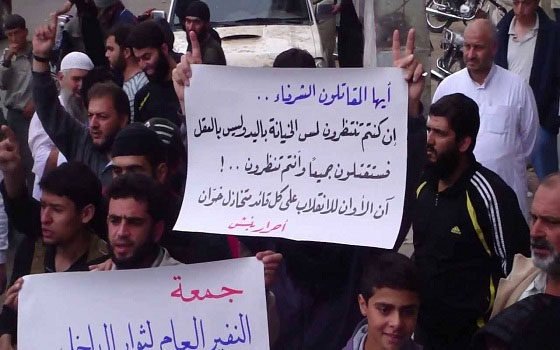 أيها المقاتلون الشرفاء ..
إن كنتم تنتظرون لمس الخيانة باليد وليس بالعقل
فستقتلون جميعاً وأنتم تنظرون ..!
آن الأوان للانقلاب على كل قائد متخاذل خوّان
أحرار بنش
جمعة
النفير العام لثوار الداخل